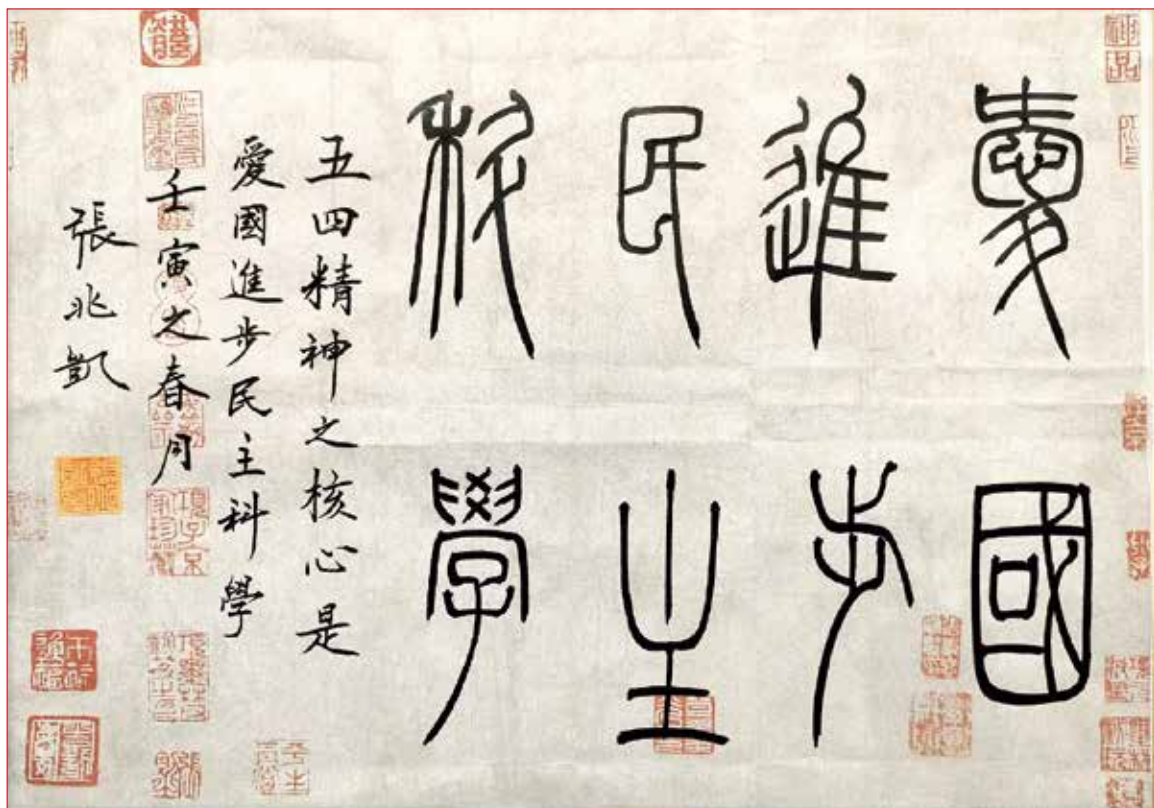 愛國
進步
民主
科學
五四精神之核心是
愛國進步民主科學
壬寅之春月
張兆凱
神品
項子京家珍藏